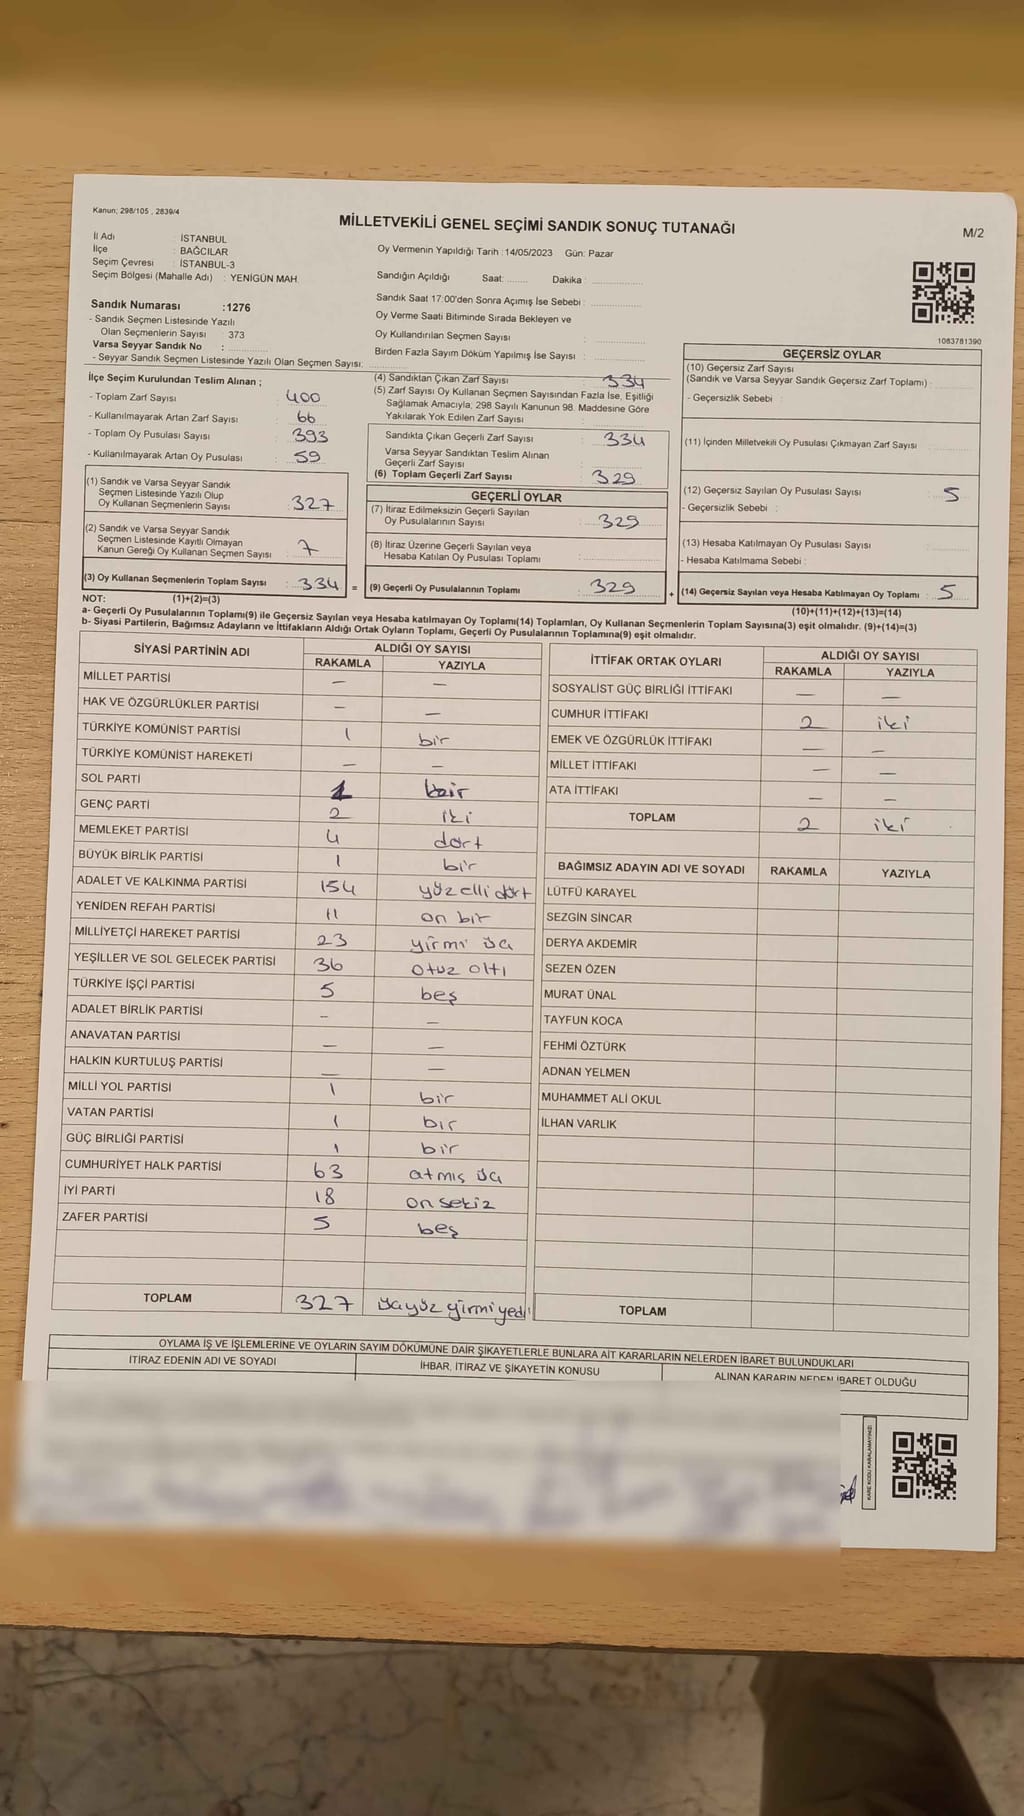 Kanun; 298/105 , 2839/4
MİLLETVEKİLİ GENEL SEÇİMİ SANDIK SONUÇ TUTANAĞI
M/2
İl Adı : İSTANBUL
İlçe : BAĞCILAR
Seçim Çevresi : İSTANBUL-3
Seçim Bölgesi (Mahalle Adı) : YENİGÜN MAH.
Oy Vermenin Yapıldığı Tarih :14/05/2023 Gün: Pazar
Sandığın Açıldığı Saat:........ Dakika :
Sandık Saat 17:00'den Sonra Açımış İse Sebebi :
Oy Verme Saati Bitiminde Sırada Bekleyen ve
Oy Kullandırılan Seçmen Sayısı :
Birden Fazla Sayım Döküm Yapılmış İse Sayısı :
Sandık Numarası :1276
- Sandık Seçmen Listesinde Yazılı
Olan Seçmenlerin Sayısı : 373
Varsa Seyyar Sandık No :
- Seyyar Sandık Seçmen Listesinde Yazılı Olan Seçmen Sayısı:
1083781390
İlçe Seçim Kurulundan Teslim Alınan ;
- Toplam Zarf Sayısı : 400
- Kullanılmayarak Artan Zarf Sayısı : 66
- Toplam Oy Pusulası Sayısı : 393
- Kullanılmayarak Artan Oy Pusulası : 59
(1) Sandık ve Varsa Seyyar Sandık
Seçmen Listesinde Yazılı Olup
Oy Kullanan Seçmenlerin Sayısı : 327
(2) Sandık ve Varsa Seyyar Sandık
Seçmen Listesinde Kayıtlı Olmayan
Kanun Gereği Oy Kullanan Seçmen Sayısı : 7
(3) Oy Kullanan Seçmenlerin Toplam Sayısı : 334 =
(4) Sandıktan Çıkan Zarf Sayısı : 334
(5) Zarf Sayısı Oy Kullanan Seçmen Sayısından Fazla İse, Eşitliği
Sağlamak Amacıyla; 298 Sayılı Kanunun 98. Maddesine Göre
Yakılarak Yok Edilen Zarf Sayısı :
Sandıkta Çıkan Geçerli Zarf Sayısı : 334
Varsa Seyyar Sandıktan Teslim Alınan
Geçerli Zarf Sayısı :
(6) Toplam Geçerli Zarf Sayısı : 329
GEÇERLİ OYLAR
(7) İtiraz Edilmeksizin Geçerli Sayılan
Oy Pusulalarının Sayısı : 329
(8) İtiraz Üzerine Geçerli Sayılan veya
Hesaba Katılan Oy Pusulası Toplamı :
(9) Geçerli Oy Pusulalarının Toplamı : 329 +
GEÇERSİZ OYLAR
(10) Geçersiz Zarf Sayısı
(Sandık ve Varsa Seyyar Sandık Geçersiz Zarf Toplamı) :
- Geçersizlik Sebebi :
(11) İçinden Milletvekili Oy Pusulası Çıkmayan Zarf Sayısı :
(12) Geçersiz Sayılan Oy Pusulası Sayısı : 5
- Geçersizlik Sebebi :
(13) Hesaba Katılmayan Oy Pusulası Sayısı :
- Hesaba Katılmama Sebebi :
(14) Geçersiz Sayılan veya Hesaba Katılmayan Oy Toplamı : 5
NOT: (1)+(2)=(3)
(10)+(11)+(12)+(13)=(14)
a- Geçerli Oy Pusulalarının Toplamı(9) ile Geçersiz Sayılan veya Hesaba katılmayan Oy Toplamı(14) Toplamları, Oy Kullanan Seçmenlerin Toplam Sayısına(3) eşit olmalıdır. (9)+(14)=(3)
b- Siyasi Partilerin, Bağımsız Adayların ve İttifakların Aldığı Ortak Oyların Toplamı, Geçerli Oy Pusulalarının Toplamına(9) eşit olmalıdır.
SİYASİ PARTİNİN ADI ALDIĞI OY SAYISI
RAKAMLA YAZIYLA
MİLLET PARTİSİ — —
HAK VE ÖZGÜRLÜKLER PARTİSİ — —
TÜRKİYE KOMÜNİST PARTİSİ 1 bir
TÜRKİYE KOMÜNİST HAREKETİ — —
SOL PARTİ 1 bir
GENÇ PARTİ 2 iki
MEMLEKET PARTİSİ 4 dört
BÜYÜK BİRLİK PARTİSİ 1 bir
ADALET VE KALKINMA PARTİSİ 154 yüz elli dört
YENİDEN REFAH PARTİSİ 11 on bir
MİLLİYETÇİ HAREKET PARTİSİ 23 yirmi üç
YEŞİLLER VE SOL GELECEK PARTİSİ 36 otuz altı
TÜRKİYE İŞÇİ PARTİSİ 5 beş
ADALET BİRLİK PARTİSİ — —
ANAVATAN PARTİSİ — —
HALKIN KURTULUŞ PARTİSİ — —
MİLLİ YOL PARTİSİ 1 bir
VATAN PARTİSİ 1 bir
GÜÇ BİRLİĞİ PARTİSİ 1 bir
CUMHURİYET HALK PARTİSİ 63 atmış üç
İYİ PARTİ 18 on sekiz
ZAFER PARTİSİ 5 beş
TOPLAM 327 üçyüz yirmi yedi
İTTİFAK ORTAK OYLARI ALDIĞI OY SAYISI
RAKAMLA YAZIYLA
SOSYALİST GÜÇ BİRLİĞİ İTTİFAKI — —
CUMHUR İTTİFAKI 2 iki
EMEK VE ÖZGÜRLÜK İTTİFAKI — —
MİLLET İTTİFAKI — —
ATA İTTİFAKI — —
TOPLAM 2 iki
BAĞIMSIZ ADAYIN ADI VE SOYADI RAKAMLA YAZIYLA
LÜTFÜ KARAYEL
SEZGİN SİNCAR
DERYA AKDEMİR
SEZEN ÖZEN
MURAT ÜNAL
TAYFUN KOCA
FEHMİ ÖZTÜRK
ADNAN YELMEN
MUHAMMET ALİ OKUL
İLHAN VARLIK
TOPLAM
OYLAMA İŞ VE İŞLEMLERİNE VE OYLARIN SAYIM DÖKÜMÜNE DAİR ŞİKAYETLERLE BUNLARA AİT KARARLARIN NELERDEN İBARET BULUNDUKLARI
İTİRAZ EDENİN ADI VE SOYADI İHBAR, İTİRAZ VE ŞİKAYETİN KONUSU ALINAN KARARIN NEDEN İBARET OLDUĞU
KARE KODU KARALAMAYINIZ!